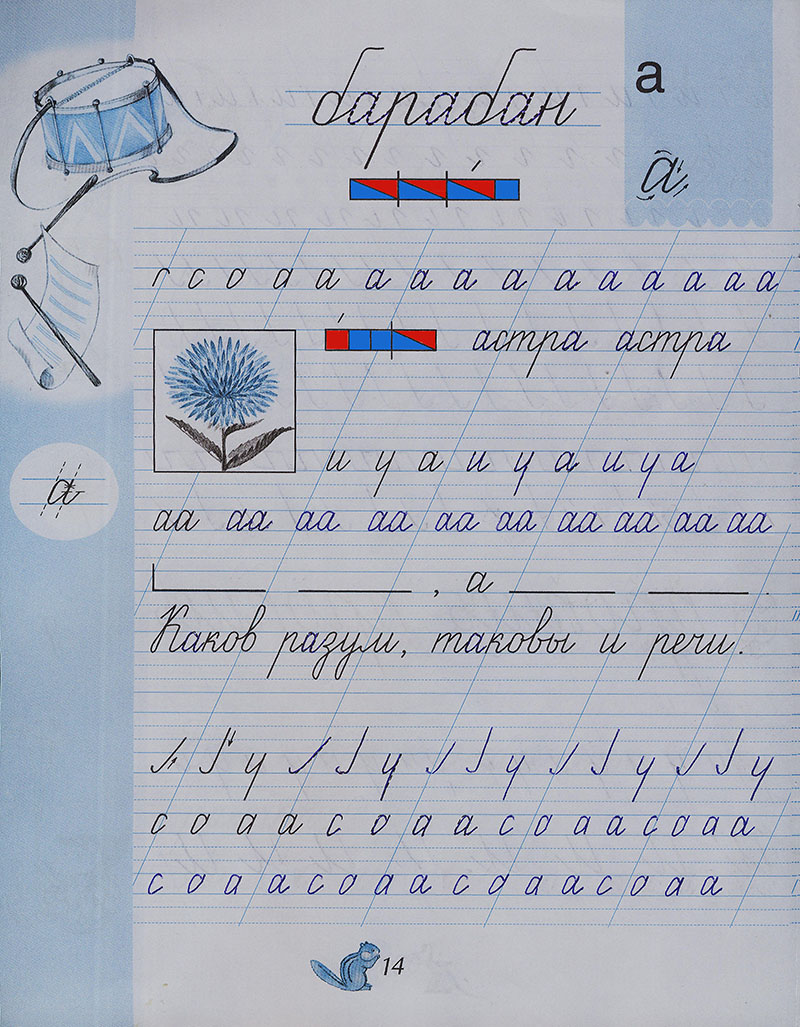 а
барабан
а
г с о а а а а а а а а а а а а а
астра астра
и у а и у а и у а
а
аа аа аа аа аа аа аа аа аа аа
, а .
Каков разум, таковы и речи.
у у у у у
с о а а с о а а с о а а с о а а
с о а а с о а а с о а а с о а а
14